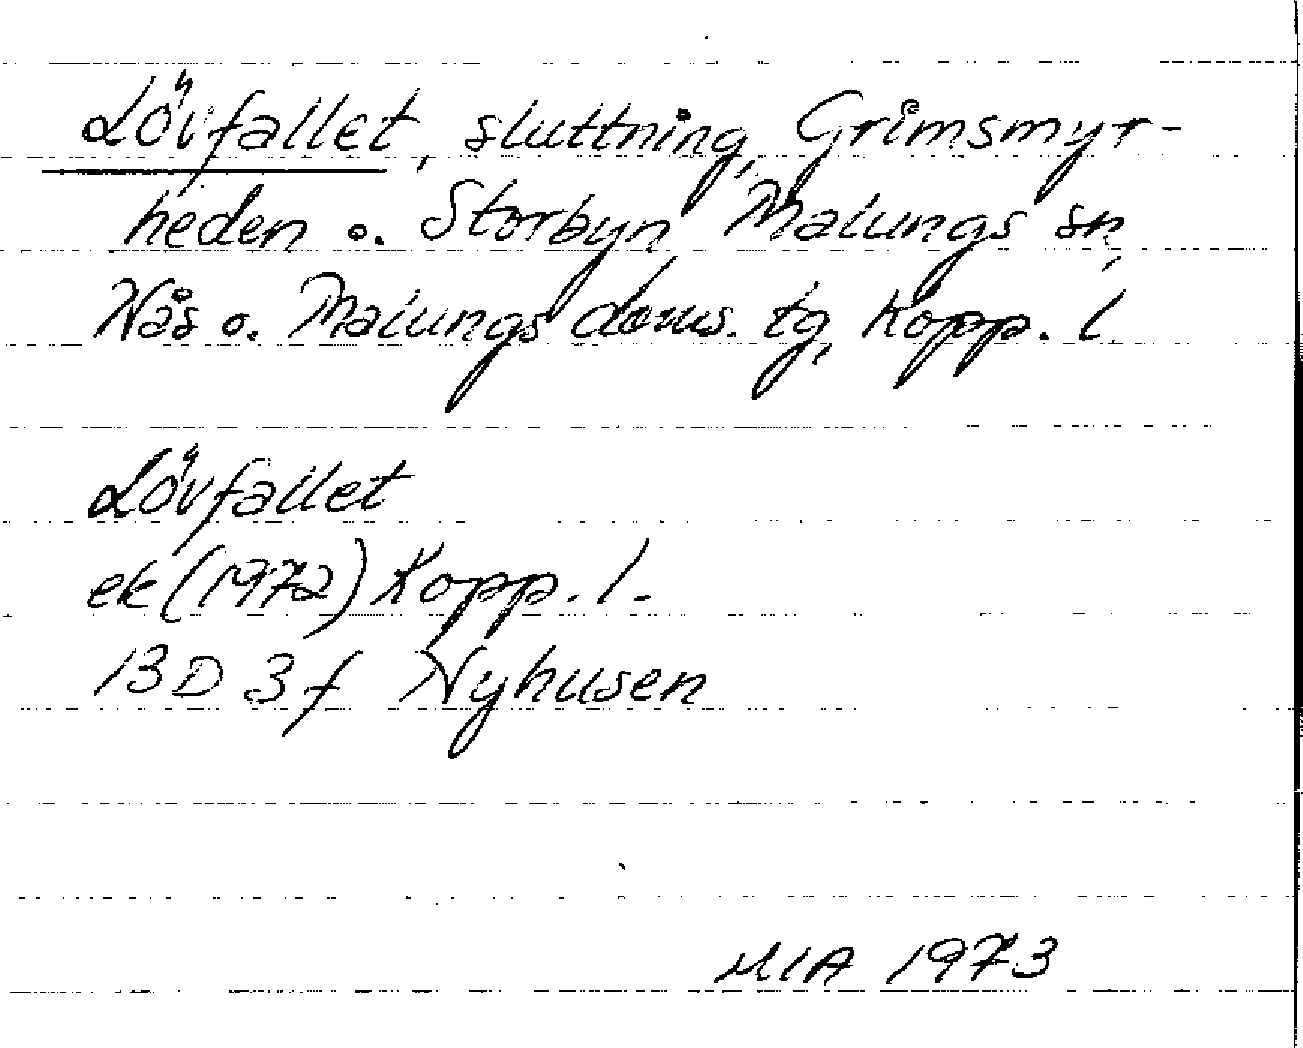 Lövfallet, sluttning, Grimsmyr-
heden o. Storbyn, Malungs sn,
Nås o. Malungs doms. tg, Kopp. l.
Lövfallet
ek (1972) Kopp. l.
13D 3f Nyhusen
MIA 1973